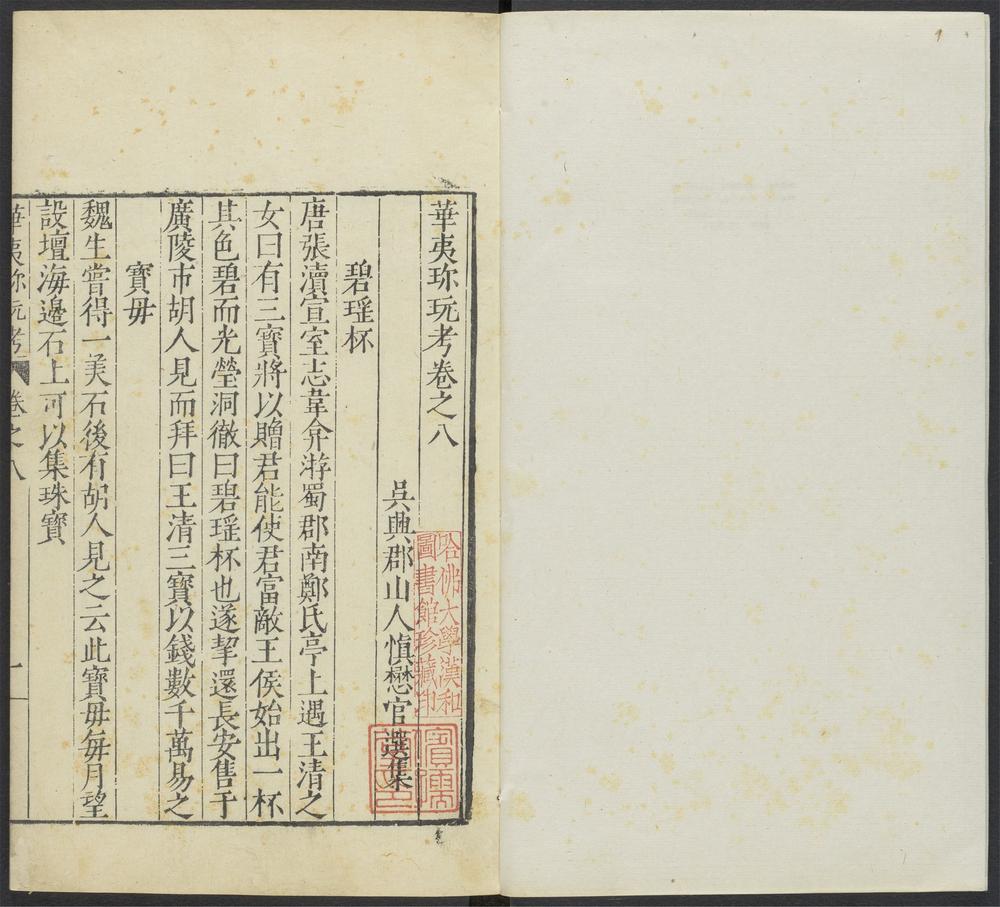 華夷珎玩考卷之八
吳興郡山人愼懋官選集
碧瑶杯
唐張瀆宣室志韋弇游蜀郡南鄭氏亭上遇王清之
女曰有三寶將以贈君能使君富敵王侯始出一杯
其色碧而光瑩洞徹曰碧瑶杯也遂挈還長安售于
廣陵市胡人見而拜曰王清三寶以錢數千萬易之
寶毋
魏生嘗得一美石後有胡人見之云此寶毋每月望
設壇海邊石上可以集珠寶
華夷珎玩考 卷之八 一
哈佛大學漢和
圖書館珍藏印